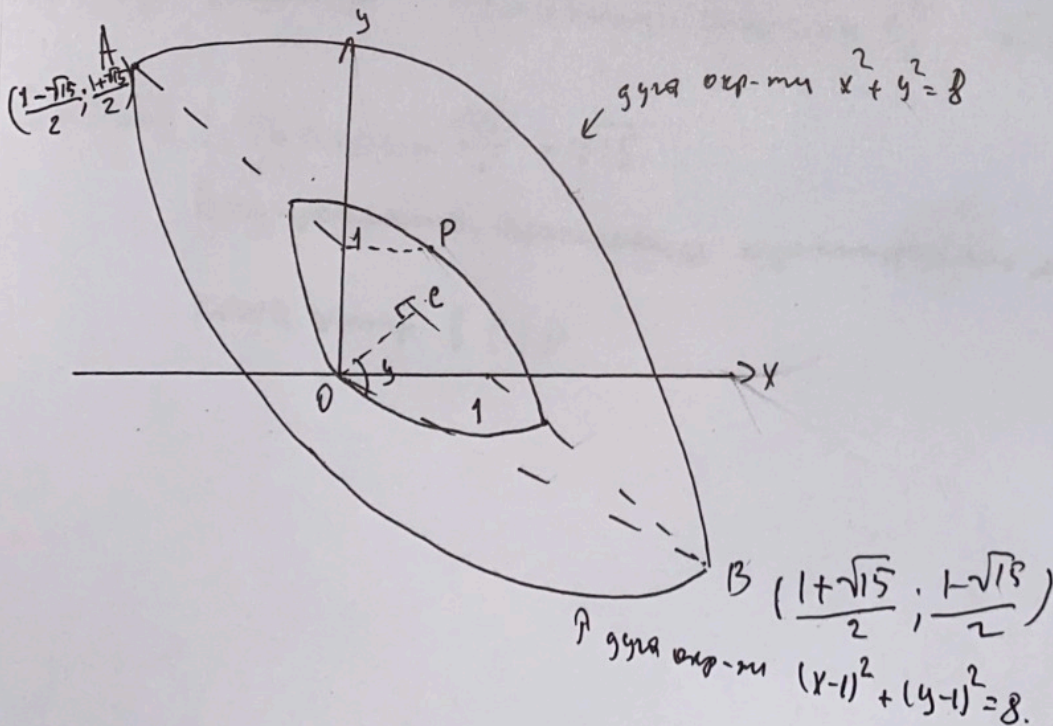 y
A
(1-√15/2; 1+√15/2)
дуга окр-ти x² + y² = 8
1
P
C
O
1
X
B (1+√15/2; 1-√15/2)
дуга окр-ти (x-1)² + (y-1)² = 8.